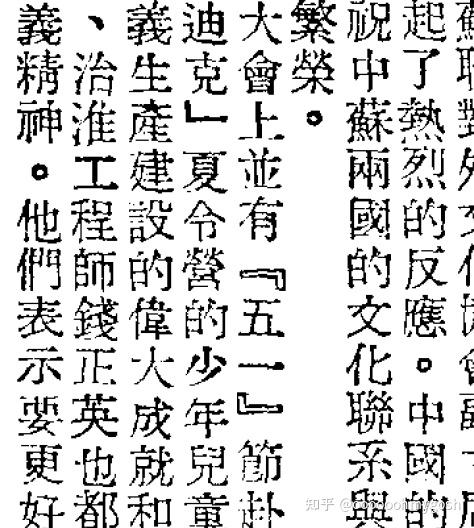 蘇聯對外文化協會副
起了熱烈的反應。中國的
祝中蘇兩國的文化聯系與
繁榮。
大會上並有『五一』節赴
迪克」夏令營的少年兒童
義生產建設的偉大成就和
、治淮工程師錢正英也都
義精神。他們表示要更好
知乎